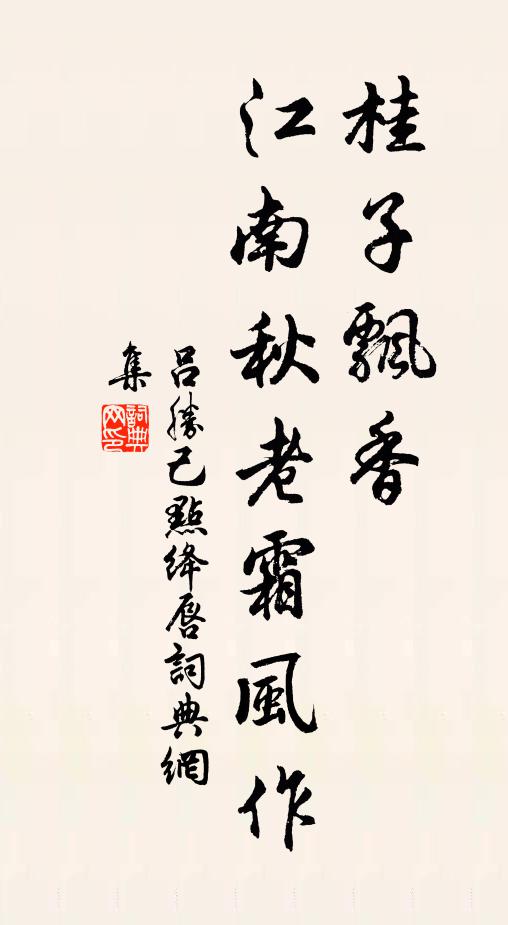 桂子飄香
江南秋老霜風作
吕勝己點絳唇詞典網
集
詞典
网印